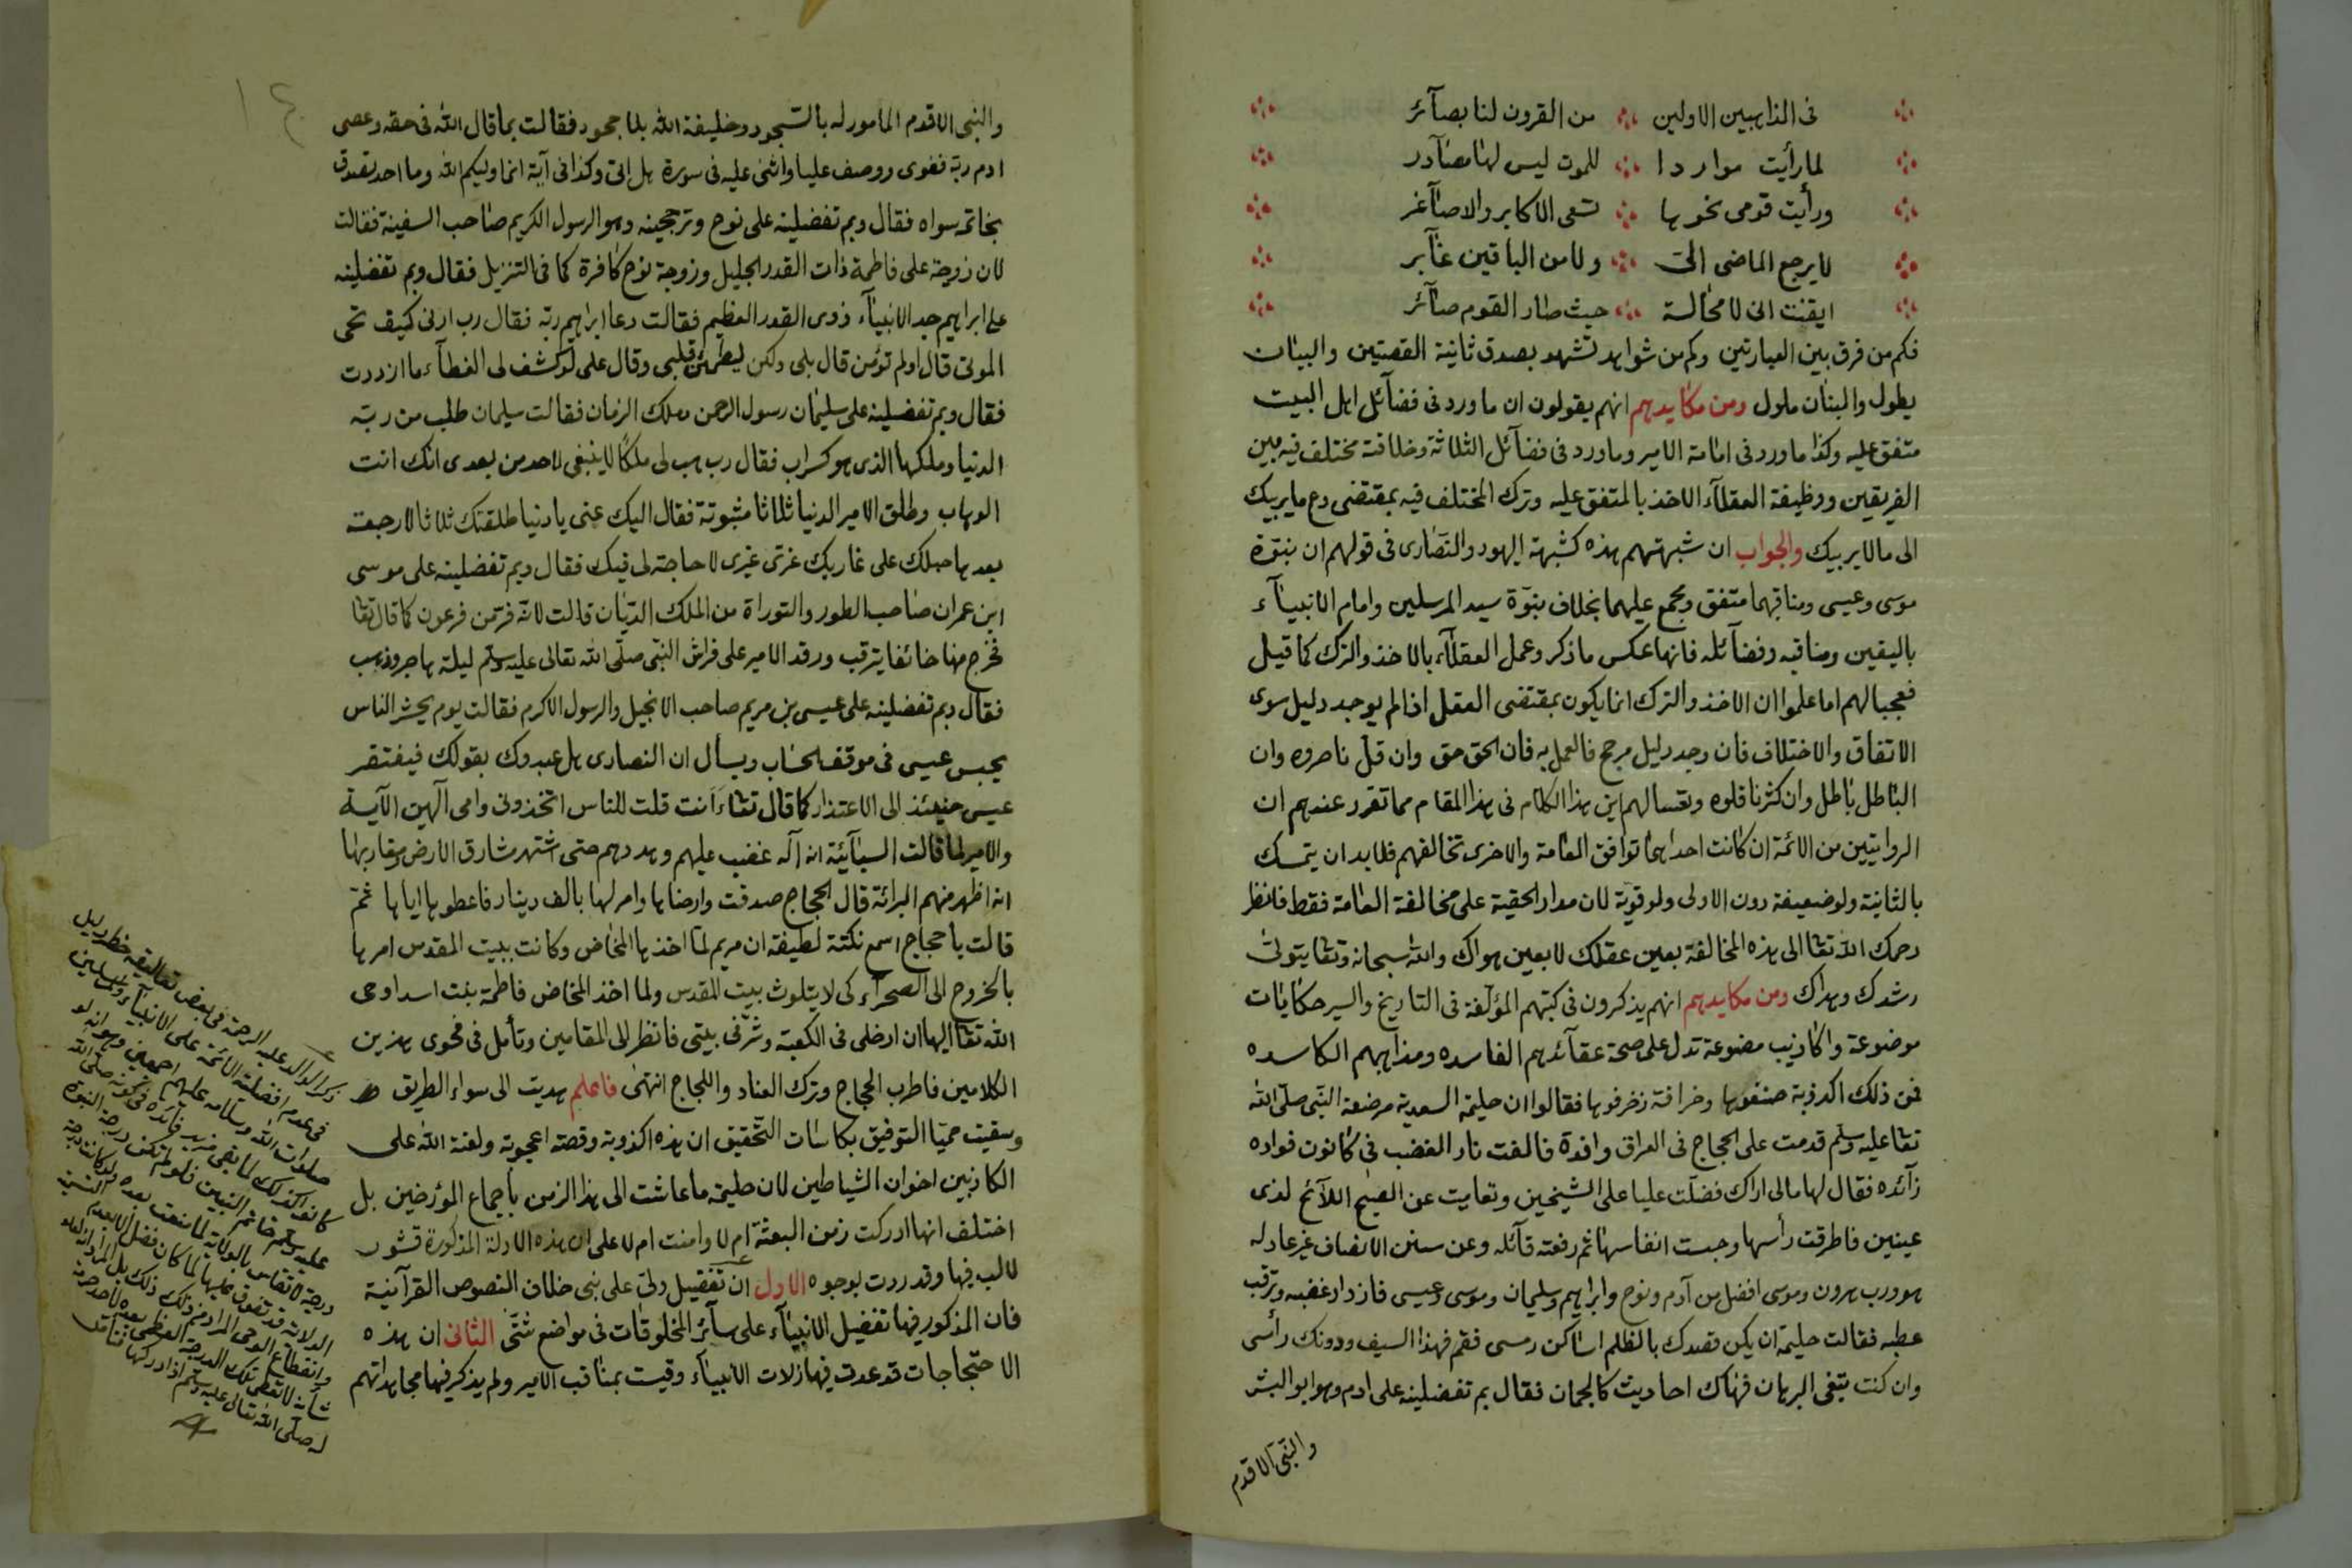 فى الذاهبين الاولين من القرون لنا بصآئر
لما رأيت مواردا للموت ليس لها مصادر
ورأيت قومى نحوها تسعى الاكابر والاصآغر
لا يرجع الماضى الىّ ولا من الباقين غآبر
ايقنت انى لا محالة حيث صار القوم صآئر
فكم من فرق بين العبارتين وكم من شواهد تشهد بصدق ثانية القصتين والبيان
يطول والبنان ملول ومن مكايدهم انهم يقولون ان ما ورد فى فضآئل اهل البيت
متفق عليه وكذا ما ورد فى امامة الامير وما ورد فى فضآئل الثلاثة وخلافة مختلف فيه بين
الفريقين ووظيفة العقلآء الاخذ بالمتفق عليه وترك المختلف فيه بمقتضى دع ما يريبك
الى ما لا يريبك والجواب ان شبهتهم هذه كشبهة اليهود والنصارى فى قولهم ان نبوّة
موسى وعيسى ومناقبهما متفق ومجمع عليهما بخلاف نبوّة سيد المرسلين وامام الانبيآء
باليقين ومناقبه وفضآئله فانها عكس ما ذكر وعمل العقلآء بالاخذ والترك كما قيل
فعجبا لهم اما علموا ان الاخذ والترك انما يكون بمقتضى العقل اذا لم يوجد دليل سوى
الاتفاق والاختلاف فان وجد دليل مرجح فالعمل به فان الحق حق وان قلّ ناصروه وان
الباطل باطل وان كثر ناقلوه وتعسا لهم اين هذا الكلام فى هذا المقام مما تقرر عندهم ان
الروايتين من الائمة ان كانت احداهما توافق العامة والاخرى تخالفهم فلا بد ان يتمسك
بالثانية ولو ضعيفة دون الاولى ولو قوية لان مدار الحقية على مخالفة العامة فقط فانظر
رحمك الله تعا الى هذه المخالفة بعين عقلك لا بعين هواك والله سبحانه وتعا يتولى
رشدك وهداك ومن مكايدهم انهم يذكرون فى كتبهم المؤلّفة فى التاريخ والسير حكايات
موضوعة واكاذيب مصنوعة تدل على صحة عقآئدهم الفاسده ومذاهبهم الكاسده
فمن ذلك اكذوبة صنفوها وخرافة زخرفوها فقالوا ان حليمة السعدية مرضعة النبى صلّى الله
تعا عليه وسلّم قدمت على الحجاج فى العراق وافدة فالفت نار الغضب فى كانون فواده
زآئده فقال لها مالى اراك فضلّت عليا على الشيخين وتعاميت عن الصبح اللآئح لذى
عينين فاطرقت رأسها وحبست انفاسها ثم رفعته قآئله وعن سنن الانصاف غير عادله
هو ورب هرون وموسى افضل من آدم ونوح وابراهيم وسليمان وموسى وعيسى فازداد غضبه وترقب
عطبه فقالت حليمة ان يكن قصدك بالظلم اساكن رمسى فقم فهذا السيف ودونك رأسى
وان كنت تبتغى البرهان فهناك احاديث كالجمان فقال بم تفضلينه على ادم وهو ابو البشر
والنبى الاقدم
والنبى الاقدم المامور له بالسّجود وخليفة الله بلا جحود فقالت بما قال الله فى حقه وعصى
ادم ربّه فغوى ووصف عليا واثنى عليه فى سورة هل اتى وكذا فى آية انما وليكم الله وما احد تصدق
بخاتمه سواه فقال وبم تفضلينه على نوح وترجحينه وهو الرسول الكريم صاحب السفينة فقالت
لان زوجة على فاطمة ذات القدر الجليل وزوجة نوح كافرة كما فى التنزيل فقال وبم تفضلينه
على ابراهيم جد الانبيآء ذوى القدر العظيم فقالت دعا ابراهيم ربّه فقال رب ارنى كيف تحى
الموتى قال اولم تؤمن قال بلى ولكن ليطمئن قلبى وقال على لو كشف لى الغطآء ما ازددت
فقال وبم تفضلينه على سليمان رسول الرحمن وملك الزمان فقالت سليمان طلب من ربّه
الدنيا وملكها الذى هو كسراب فقال رب هب لى ملكًا لا ينبغى لاحد من بعدى انك انت
الوهاب وطلق الامير الدنيا ثلاثا مثبوتة فقال اليك عنى يا دنيا طلقتك ثلاثا لا رجعة
بعدها حبلك على غاربك غرّى غيرى لا حاجة لى فيك فقال وبم تفضلينه على موسى
ابن عمران صاحب الطور والتوراة من الملك الديّان قالت لانّه فرّ من فرعون كما قال تعا
فخرج منها خائفا يترقب ورقد الامير على فراش النبّى صلّى الله تعالى عليه وسلّم ليلة هاجر وذهب
فقال وبم تفضلينه على عيسى بن مريم صاحب الانجيل والرسول الاكرم فقالت يوم يحشر الناس
يحبس عيسى فى موقف الحساب ويسأل ان النصارى هل عبدوك بقولك فيفتقر
عيسى حينئذ الى الاعتذار كما قال تعا ءَاَنت قلت للناس اتخذونى وامى الهين الآية
والامير لما قالت السبآئيّة انه اله غضب عليهم وهددهم حتى اشتهر مشارق الارض ومغاربها
انه اظهر منهم البرائة قال الحجاج صدقت وارضاها وامر لها بالف دينار فاعطوها اياها ثم
قالت يا حجاج اسمع نكتة لطيفة ان مريم لما اخذها المخاض وكانت ببيت المقدس امرها
بالخروج الى الصحرآء كى لا يتلوث بيت المقدس ولما اخذ المخاض فاطمة بنت اسد اوحى
الله تعا اليها ان ادخلى فى الكعبة وشرّفى بيتى فانظر الى المقامين وتأمل فى فحوى هذين
الكلامين فاطرب الحجاج وترك العناد واللجاج انتهى فاعلم هديت الى سواء الطريق
وسقيت حميّا التوفيق بكاسات التّحقيق ان هذه اكذوبة وقصة اعجوبة ولعنة الله على
الكاذبين اخوان الشياطين لان حليمة ما عاشت الى هذا الزمن باجماع المؤرخين بل
اختلف انها ادركت زمن البعثة ام لا وامنت ام لا على ان هذه الادلة المذكورة قشور
لا لب فيها وقد ردت بوجوه الاول ان تفضيل ولىّ على نبى خلاف النصوص القرآنية
فان المذكور فيها تفضيل الانبيآء على سآئر المخلوقات فى مواضع شتّى الثانى ان هذه
الاحتجاجات قد عدت فيها زلات الانبيآء وقيست بمناقب الامير ولم يذكر فيها مجاهداتهم
ذكر الوالد عليه الرحمة فى بعض تعاليقه
فى عدم افضلية الائمة على الانبيآء والمرسلين
صلوات الله وسلامه عليهم اجمعين وهو انه لو
كانوا كذلك لما بقى مزيد فآئده فى كونه صلّى الله
عليه وسلّم خاتم النبيين
له صلّى الله تعالى عليه وسلّم